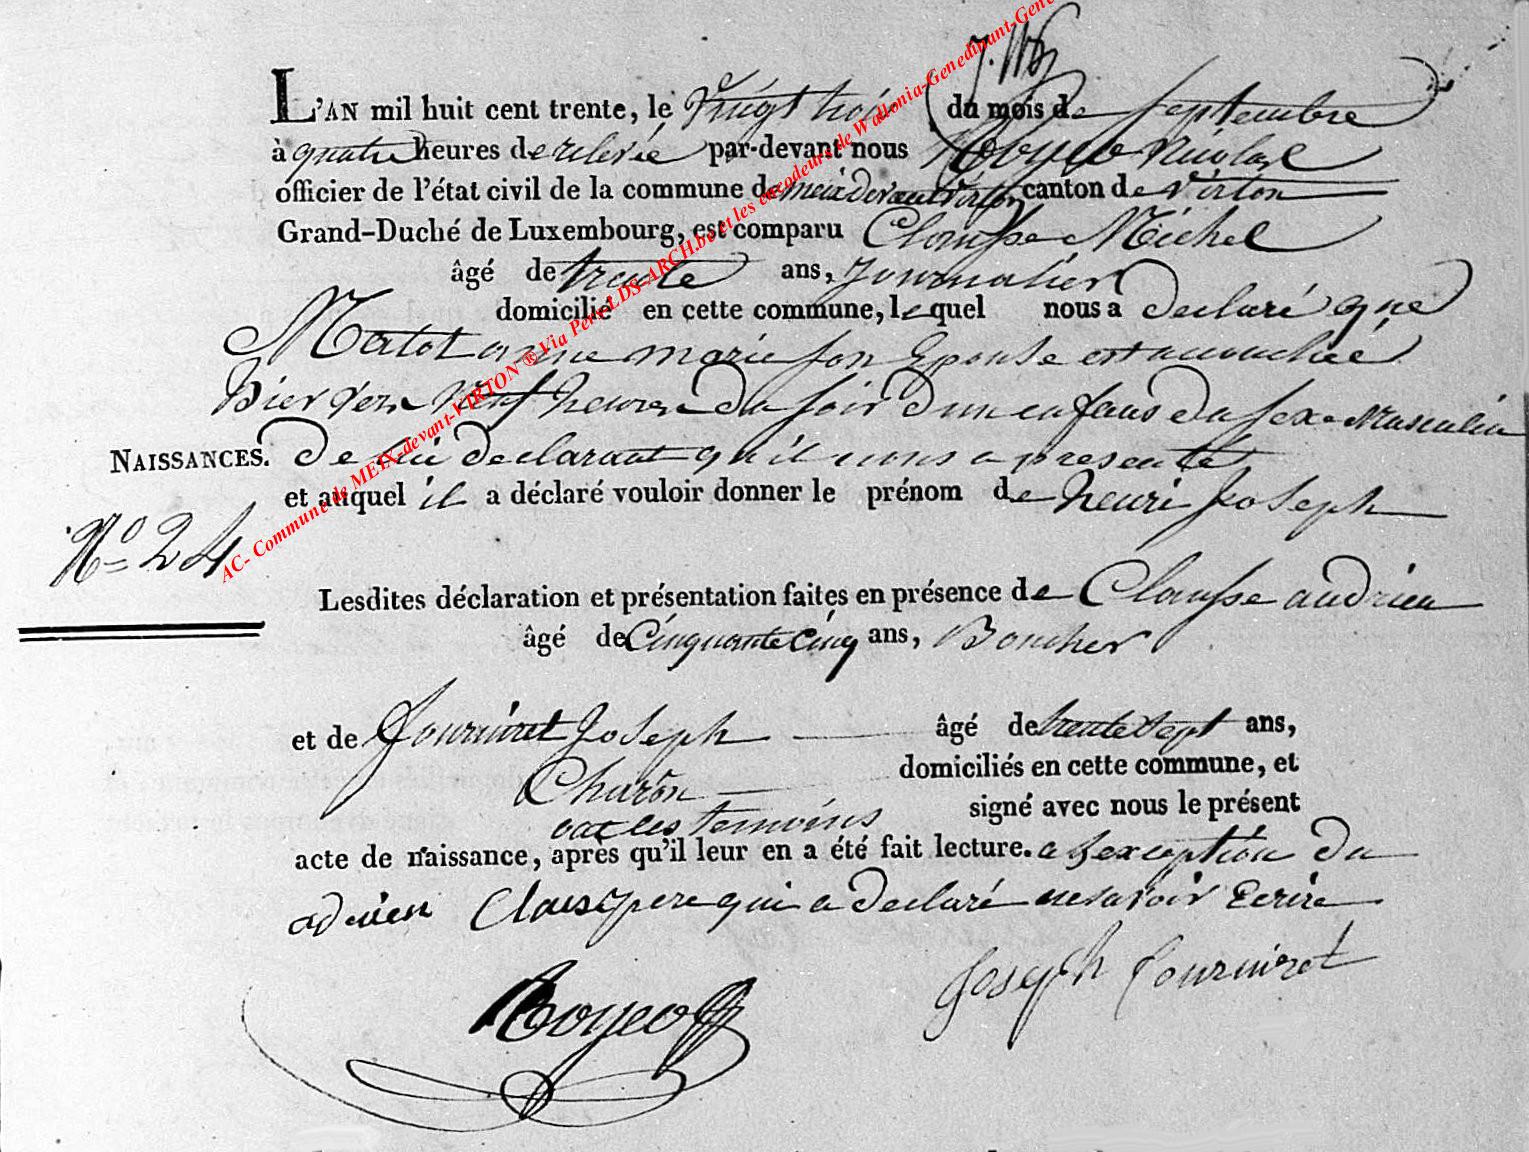 L'AN mil huit cent trente, le Vingt trois du mois de Septembre
à quatre heures de relevée par-devant nous Royco Nicolas
officier de l'état civil de la commune de meix devant virton canton de Virton
Grand-Duché de Luxembourg, est comparu Clausse Michel
âgé de trente ans, Journalier
domicilié en cette commune, lequel nous a declaré que
anne marie son Epouse est accouchée
hier vers Neuf heures du soir d'un enfant du sexe Masculin
NAISSANCES. de lui declarant qu'il nous a presenté
et auquel il a déclaré vouloir donner le prénom de henri Joseph
No 24
Lesdites déclaration et présentation faites en présence de Clausse andrien
âgé de Cinquante Cinq ans,
et de Fourniret Joseph âgé de trente Sept ans,
Charon domiciliés en cette commune, et
les temoins signé avec nous le présent
acte de naissance, après qu'il leur en a été fait lecture. a Lexception du
adrien père qui a declaré ne savoir Ecrire
Joseph fourniret
Royco
AC- Commune de MEIX-devant-VIRTON ® Via Pers-LDS-ARCH.be et les encodeurs de Wallonia-Genedinant-Gene